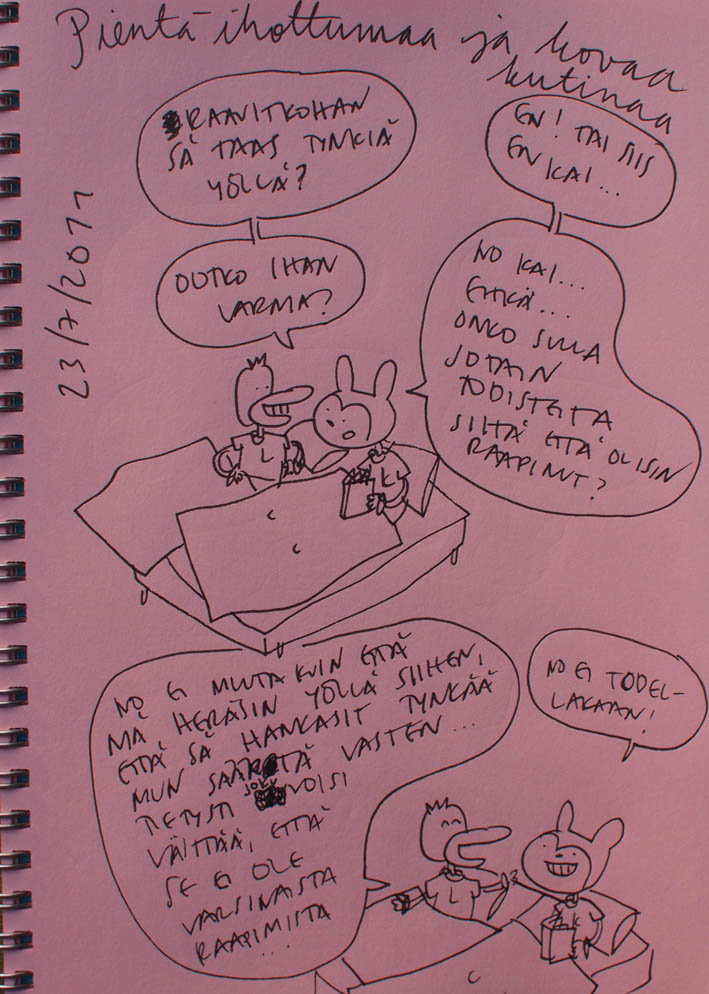 Pientä ihottumaa ja kovaa
kutinaa
23/7/2011
RAAVITKOHAN
SÄ TAAS TYNKIÄ
YÖLLÄ?
EN! TAI SIIS
EN KAI...
OOTKO IHAN
VARMA?
NO KAI...
EHKÄ...
ONKO SULLA
JOTAIN
TODISTEITA
SIITÄ ETTÄ OLISIN
RAAPINUT?
L
L
NO EI MUUTA KUIN ETTÄ
MÄ HERÄSIN YÖLLÄ SIIHEN,
ETTÄ SÄ HANKASIT TYNKÄÄ
MUN SÄÄRTÄ VASTEN...
TIETYSTI JOKU VOISI
VÄITTÄÄ, ETTÄ
SE EI OLE
VARSINAISTA
RAAPIMISTA
...
NO EI TODEL-
LAKAAN!
L